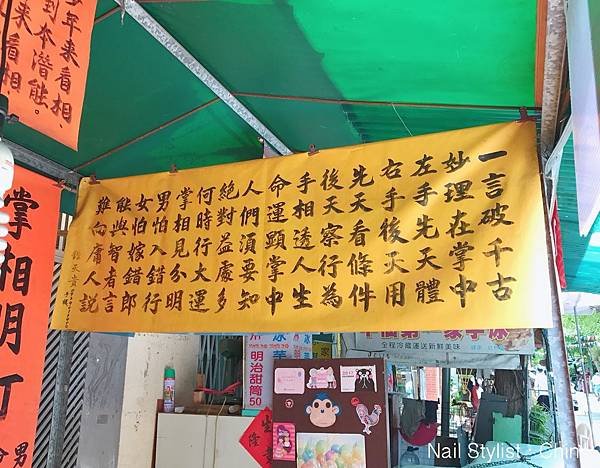 一言破千古
妙理在掌中
左手先天體
右手後天用
先天看條件
後天察行為
手相透人生
命運顯掌中
人們須要知
絕對益處多
何時行大運
掌相見分明
男怕入錯行
女怕嫁錯郎
能與智者言
難向庸人說
少年來看相、
到本潛能。
來看相
掌相明
男
全程冷藏運送新鮮美味
明治甜筒
50
2017
Nail Stylist · Chin